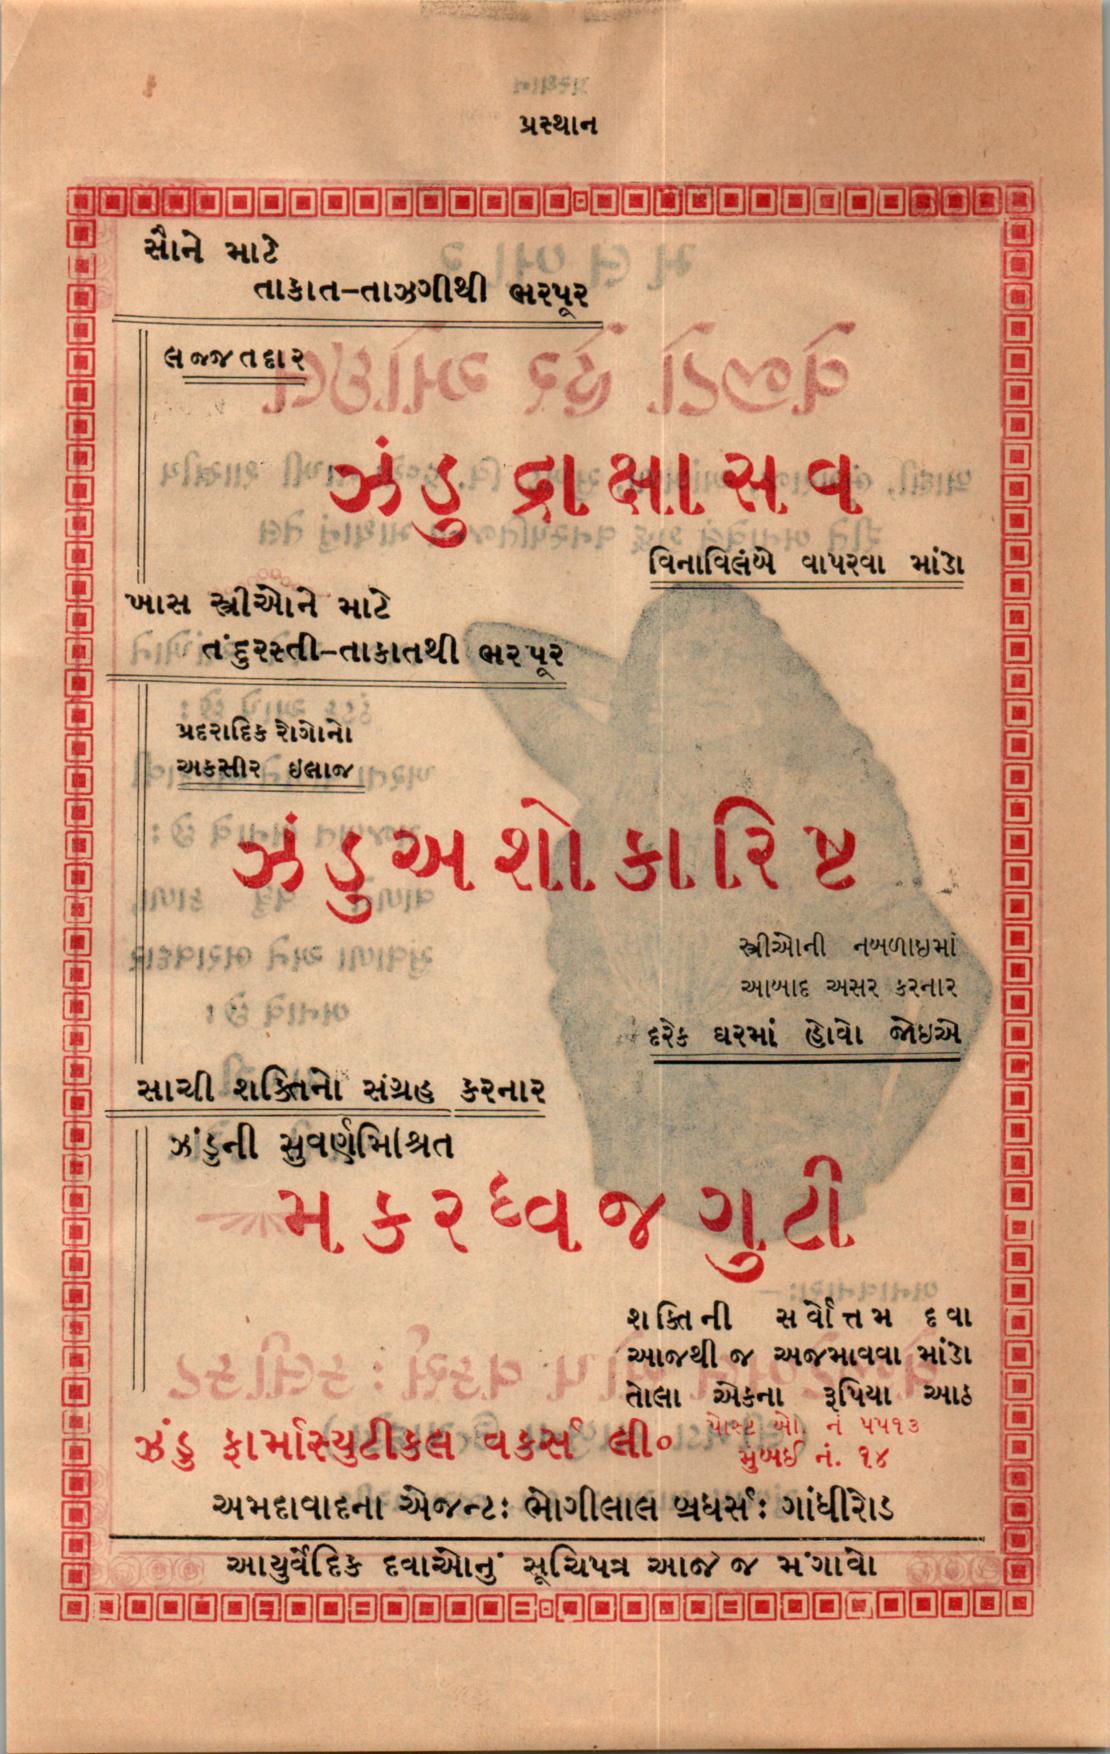 પ્રસ્થાન
સૌને માટે
તાકાત-તાઝગીથી ભરપૂર
લજ્જતદાર
ઝંડુ દ્રાક્ષાસવ
વિનાવિલંબે વાપરવા માંડો
ખાસ સ્ત્રીઓને માટે
તંદુરસ્તી-તાકાતથી ભરપૂર
પ્રદરાદિક રોગોનો
અકસીર ઇલાજ
ઝંડુ અશોકારિષ્ટ
સ્ત્રીઓની નબળાઇમાં
આબાદ અસર કરનાર
દરેક ઘરમાં હોવો જોઇએ
સાચી શક્તિનો સંગ્રહ કરનાર
ઝંડુની સુવર્ણમિશ્રિત
મકરધ્વજ ગુટી
શક્તિની સર્વોત્તમ દવા
આજથી જ અજમાવવા માંડો
તોલા એકના રૂપિયા આઠ
ઝંડુ ફાર્માસ્યુટીકલ વર્કસ લી૦ પોસ્ટ બો નં ૫૫૧૩
મુંબઈ નં. ૧૪
અમદાવાદના એજન્ટઃ ભોગીલાલ બ્રધર્સઃ ગાંધીરોડ
આયુર્વેદિક દવાઓનું સૂચિપત્ર આજે જ મંગાવો